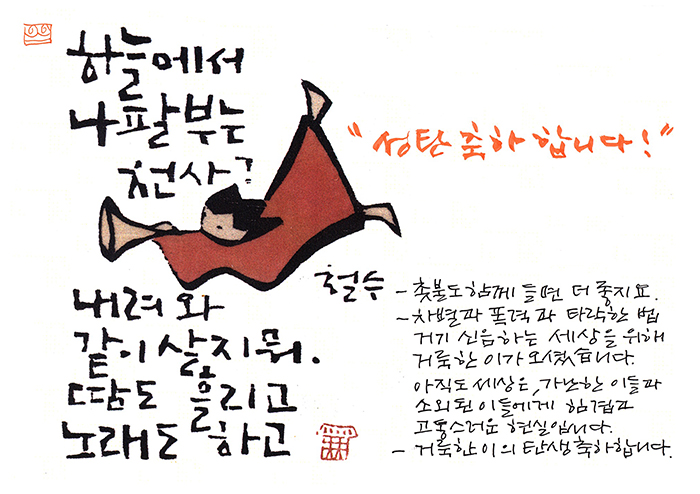 하늘에서
나팔부는
천사?
"성탄 축하 합니다!"
철수
내려와
같이 살지 뭐.
땀도 흘리고
노래도 하고
- 촛불도 함께 들면 더 좋지요.
- 차별과 폭력과 타락한 법
거기 신음하는 세상을 위해
거룩한 이가 오셨습니다.
아직도 세상은, 가난한 이들과
소외된 이들에게 힘겹고
고통스러운 현실입니다.
- 거룩한 이의 탄생 축하합니다.